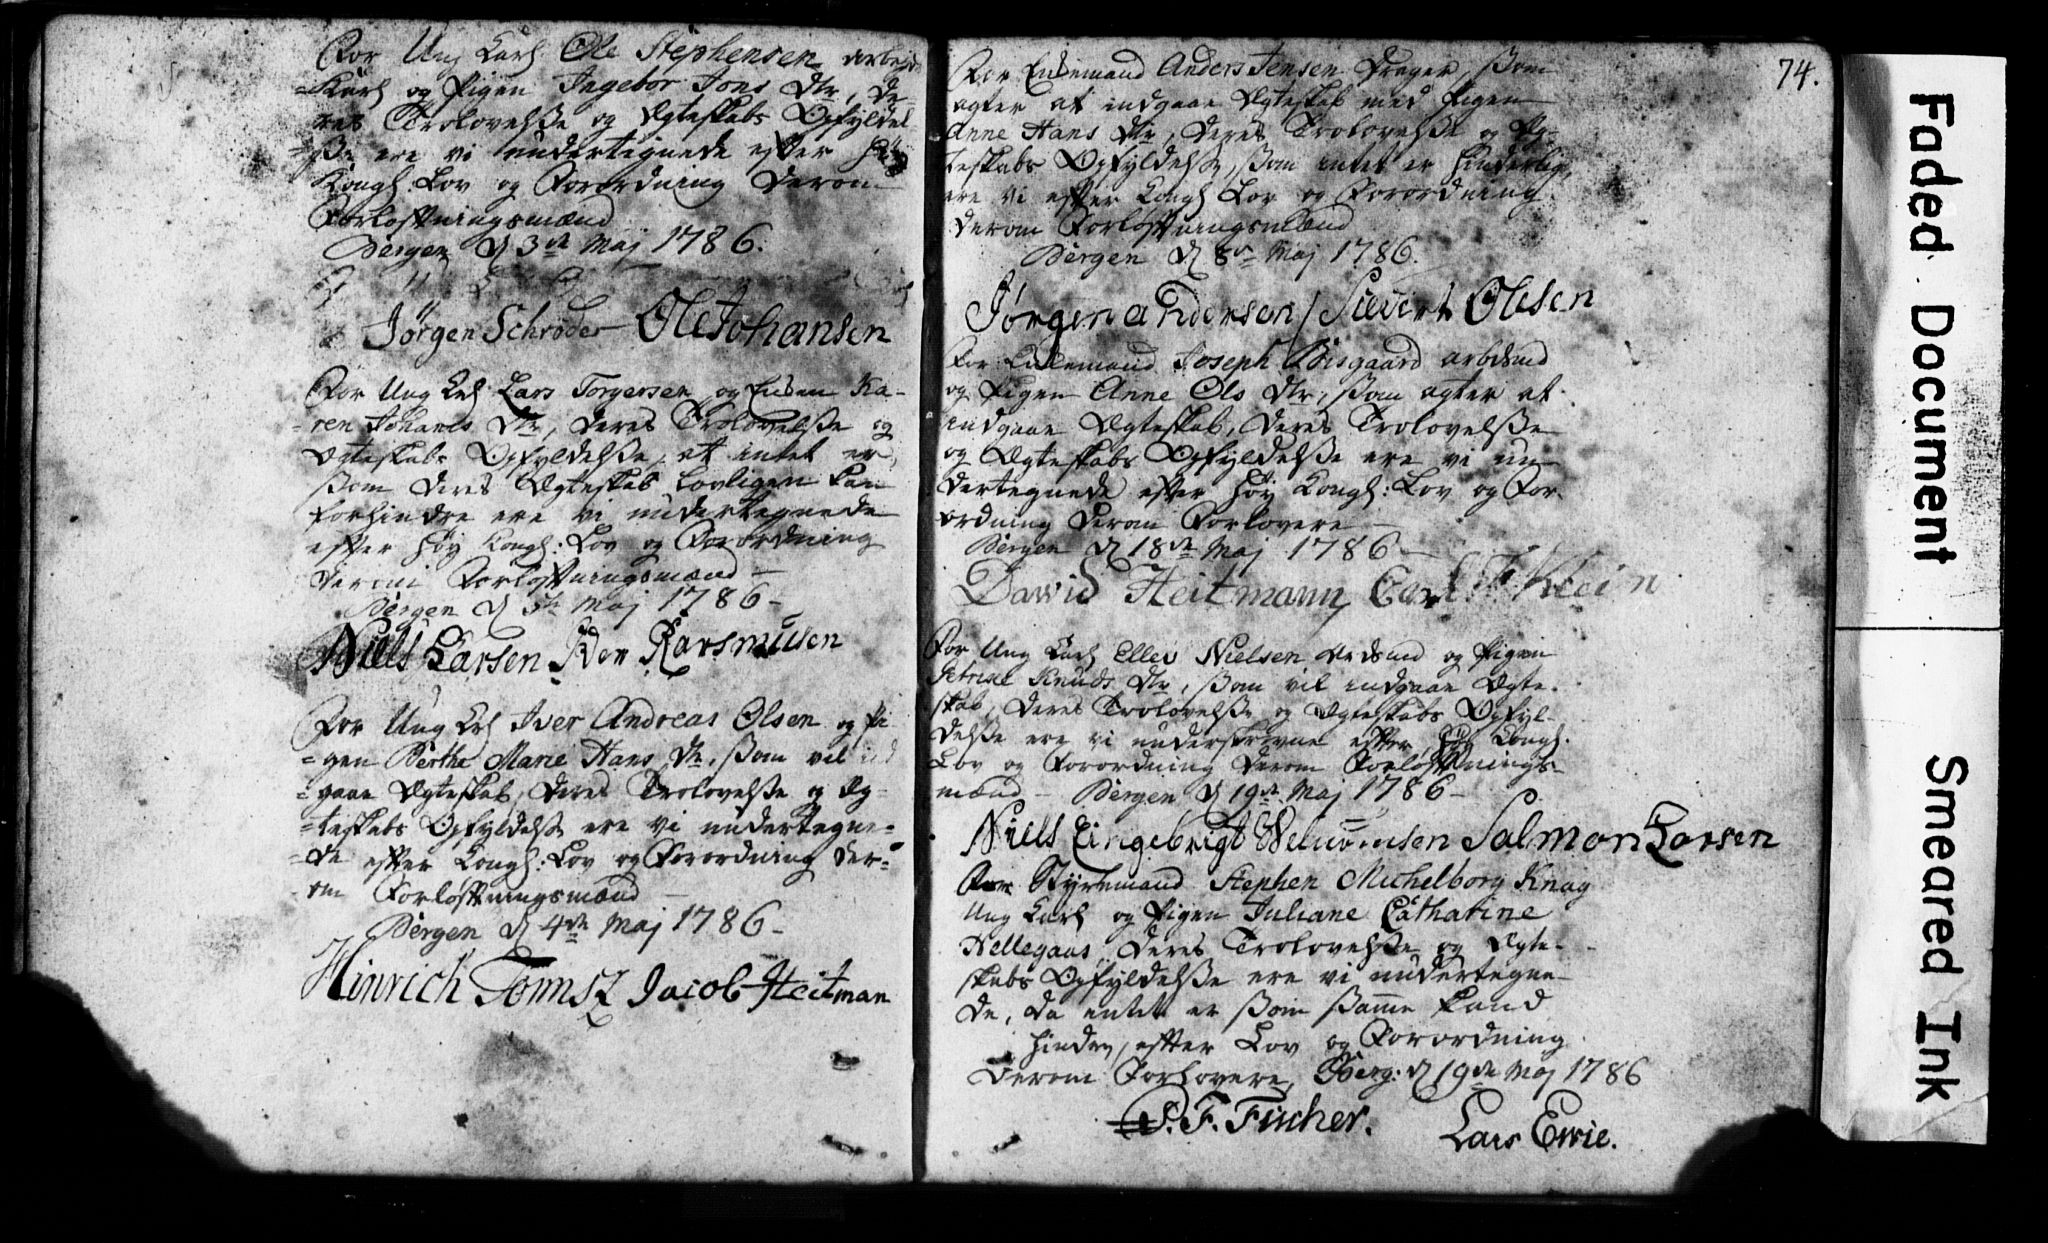 For Ung Karl Ole Stephensen arbeids
Karl og Pigen Ingebor Jons Dtr, De-
res Trolovelsse og Ægteskabs Opfyldel-
sse ere vi undertignede efter Høy
Kongl: Lov og Forordning derom
Forløftningsmænd
Bergen d 3de Maj 1786.
Jørgen Schrøder Ole Johansen
For Ung Krl Lars Torgersen og Enken Ka-
ren Johanes Dtr, Deres Trolovelsse og
Ægteskabs Opfyldelsse, at intet er,
ssom deres Ægteskab lovligen kan
forhindre ere vi undertegnede
efter høy Kongl: Lov og Forordning
derom Forløftningsmænd
Bergen d Maj 1786
Niels Larsen Rasmusen
For Ung Krl Iver Andreas Olsen og Pi
gen Berthe Marie Hans Dtr, ssom vil ind
gaae Ægteskab, Deres Trolovelsse og Æg-
teskabs Opfyldelsse ere vi undertegne-
de efter Kongl: Lov og Forordning der-
om Forløftningsmænd
Bergen d 4de Maj 1786
Hinrich Jacob Heitman
74.
For Enkemand Anders Jensen Drager, ssom
agter at indgaae Ægteskab med Pigen
Anne Hans Dtr, Deres Trolovelsse og Æg-
teskabs Opfyldelsse, ssom intet er hinderlig,
ere vi efter Kongl Lov og Forordning
derom Forløftningsmænd
Bergen d 8de Maj 1786.
Jørgen Andersen / Sievert Olesen
For Enkemand Joseph Bisgaard arbdsmd
og Pigen Anne Ols Dtr, ssom agter at
indgaae Ægteskab, Deres Trolovelsse
og Ægteskabs Opfyldelsse ere vi un-
dertegnede efter høy Kongl: Lov og For-
ordning derom Forlovere
Bergen d 18de Maj 1786
David Heitmann Carl F Klein
For Ung Karl Ellev Nielsen og Pigen
Petrine Knuds Dtr, ssom vil indgaae Ægte-
skab, Deres Trolovelsse og Ægteskabs Opfyl-
delsse ere vi underskrevne efter høy Kongl:
Lov og Forordning derom Forløftnings-
mænd Bergen d 19de Maj 1786
Niels Eingebrigt Salmon Larsen
For Styrmand Stephen Michelborg Knag
Ung Karl og Pigen Juliane Catharine
Hellegaas, Deres Trolovelsse og Ægte-
skabs Opfyldelsse ere vi undertegne-
de, da intet er ssom ssamme kand
hindre, efter Lov og Forordning
derom Forlovere, Berg: d 19de Maj 1786
F. Fischer. Lars
Faded Document
Smeared Ink